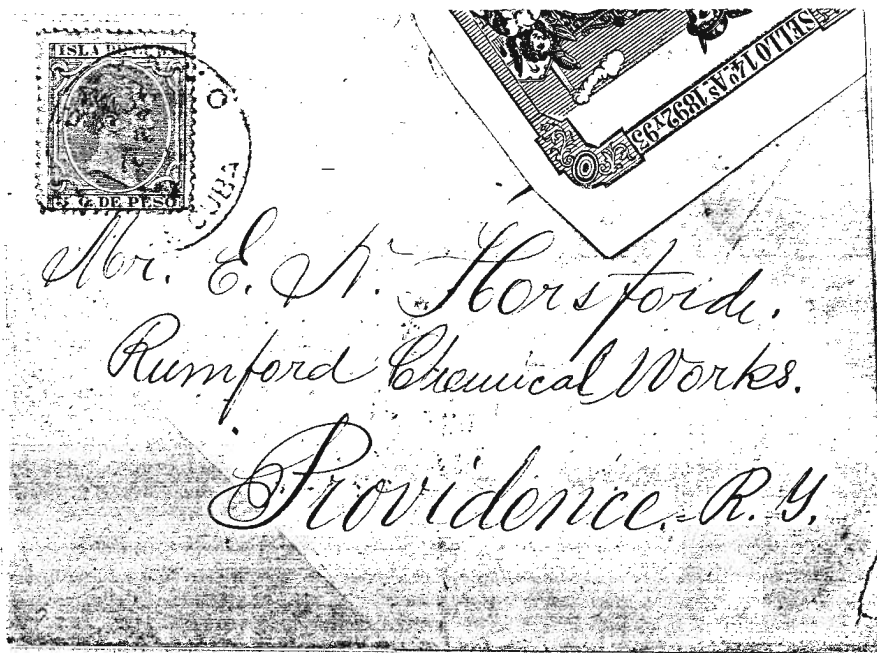 ISLA DE CUBA
5 C. DE PESO
CUBA
SELLO 14º Aº 1892 Y 93
Mr. E. N. Horsforde.
Rumford Chemical Works.
Providence. R. Y.